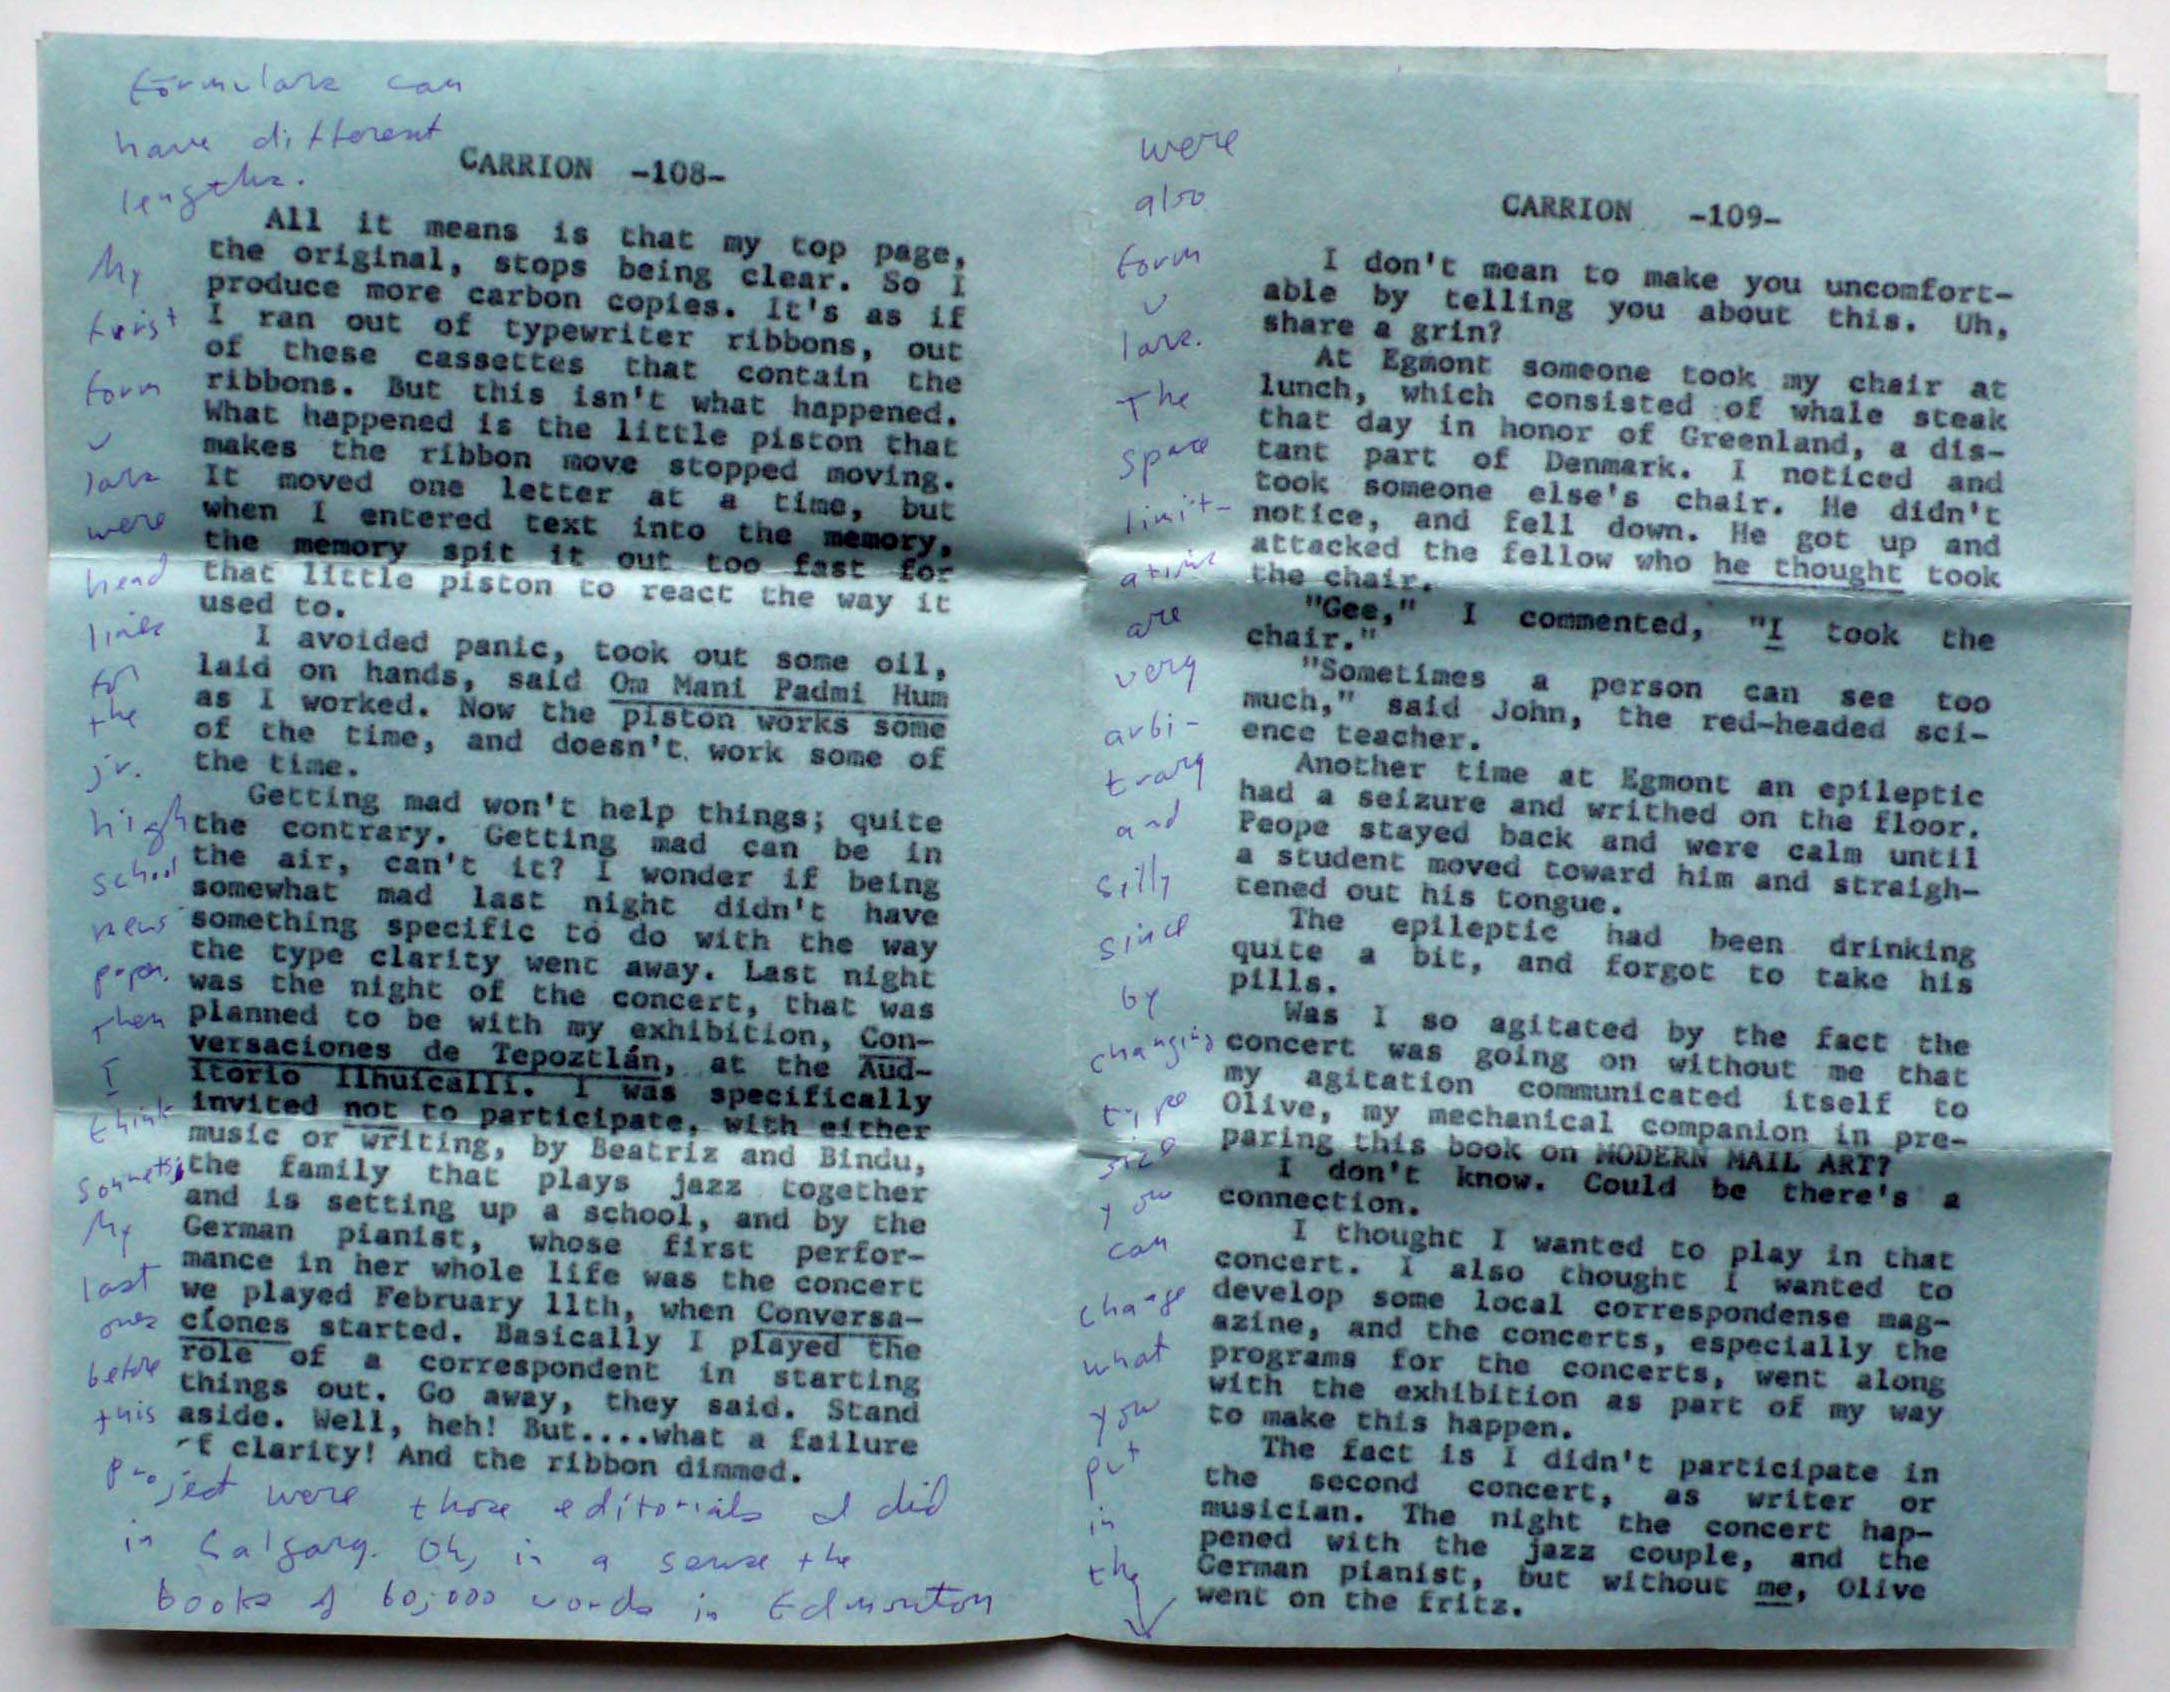 Formulars can
have different
lengths.
My
first
form
u
lars
were
head
lines
for
the
jr.
high
school
news
paper.
Then
I
think
sonnets;
My
last
ones
before
this
project were those editorials I did
in Calgary. Oh, in a sense the
books of 60,000 words in Edmonton
CARRION -108-
All it means is that my top page,
the original, stops being clear. So I
produce more carbon copies. It's as if
I ran out of typewriter ribbons, out
of these cassettes that contain the
ribbons. But this isn't what happened.
What happened is the little piston that
makes the ribbon move stopped moving.
It moved one letter at a time, but
when I entered text into the memory,
the memory spit it out too fast for
that little piston to react the way it
used to.
I avoided panic, took out some oil,
laid on hands, said Om Mani Padmi Hum
as I worked. Now the piston works some
of the time, and doesn't work some of
the time.
Getting mad won't help things; quite
the contrary. Getting mad can be in
the air, can't it? I wonder if being
somewhat mad last night didn't have
something specific to do with the way
the type clarity went away. Last night
was the night of the concert, that was
planned to be with my exhibition, Con-
versaciones de Tepoztlán, at the Aud-
itorio Ilhuicalli. I was specifically
invited not to participate, with either
music or writing, by Beatriz and Bindu,
the family that plays jazz together
and is setting up a school, and by the
German pianist, whose first perfor-
mance in her whole life was the concert
we played February 11th, when Conversa-
ciones started. Basically I played the
role of a correspondent in starting
things out. Go away, they said. Stand
aside. Well, heh! But....what a failure
f clarity! And the ribbon dimmed.
were
also
form
u
lars.
The
space
limit-
ations
are
very
arbi-
trary
and
silly
since
by
changing
type
size
you
can
change
what
you
put
in
the
CARRION -109-
I don't mean to make you uncomfort-
able by telling you about this. Uh,
share a grin?
At Egmont someone took my chair at
lunch, which consisted of whale steak
that day in honor of Greenland, a dis-
tant part of Denmark. I noticed and
took someone else's chair. He didn't
notice, and fell down. He got up and
attacked the fellow who he thought took
the chair.
"Gee," I commented, "I took the
chair."
"Sometimes a person can see too
much," said John, the red-headed sci-
ence teacher.
Another time at Egmont an epileptic
had a seizure and writhed on the floor.
Peope stayed back and were calm until
a student moved toward him and straigh-
tened out his tongue.
The epileptic had been drinking
quite a bit, and forgot to take his
pills.
Was I so agitated by the fact the
concert was going on without me that
my agitation communicated itself to
Olive, my mechanical companion in pre-
paring this book on MODERN MAIL ART?
I don't know. Could be there's a
connection.
I thought I wanted to play in that
concert. I also thought I wanted to
develop some local correspondense mag-
azine, and the concerts, especially the
programs for the concerts, went along
with the exhibition as part of my way
to make this happen.
The fact is I didn't participate in
the second concert, as writer or
musician. The night the concert hap-
pened with the jazz couple, and the
German pianist, but without me, Olive
went on the fritz.